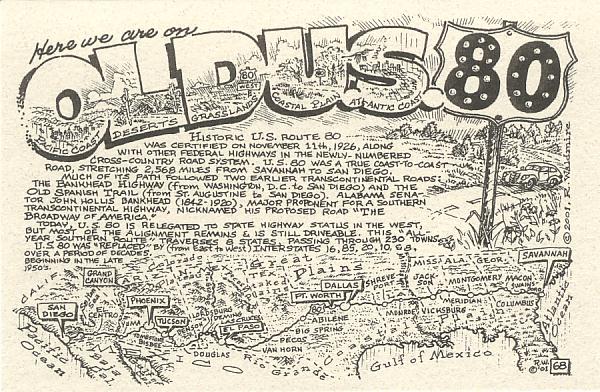 Here we are on
OLD U.S. 80
80
WEST
PACIFIC COAST
DESERTS
GRASSLAND
COASTAL PLAIN
ATLANTIC COAST
HISTORIC U.S. ROUTE 80
WAS CERTIFIED ON NOVEMBER 11th, 1926, ALONG
WITH OTHER FEDERAL HIGHWAYS IN THE NEWLY-NUMBERED
CROSS-COUNTRY ROAD SYSTEM. U.S. 80 WAS A TRUE COAST-TO-COAST
ROAD, STRETCHING 2,568 MILES FROM SAVANNAH TO SAN DIEGO.
MUCH OF ITS PATH FOLLOWED TWO EARLIER TRANSCONTINENTAL ROADS:
THE BANKHEAD HIGHWAY (FROM WASHINGTON, D.C. TO SAN DIEGO) AND THE
OLD SPANISH TRAIL (FROM ST. AUGUSTINE TO SAN DIEGO). ALABAMA SENA-
TOR JOHN HOLLIS BANKHEAD (1842-1920), MAJOR PROPONENT FOR A SOUTHERN
TRANSCONTINENTAL HIGHWAY, NICKNAMED HIS PROPOSED ROAD "THE
BROADWAY OF AMERICA."
TODAY, U.S. 80 IS RELEGATED TO STATE HIGHWAY STATUS IN THE WEST,
BUT MOST OF THE ALIGNMENT REMAINS & IS STILL DRIVEABLE. THIS "ALL
YEAR ALL WEATHER ROUTE" TRAVERSES 8 STATES, PASSING THROUGH 230 TOWNS.
U.S. 80 WAS "REPLACED" BY (from EAST to WEST) INTERSTATES 16, 85, 20, 10 & 8,
OVER A PERIOD OF DECADES,
BEGINNING IN THE LATE
1950'S.
© 2001,
GRAND CANYON
Great Plains
SAN DIEGO
EL CENTRO
PHOENIX
TUCSON
DOUGLAS
DEMING
EL PASO
VAN HORN
PECOS
BIG SPRING
ABILENE
80
FT. WORTH
DALLAS
SHREVEPORT
MONROE
VICKSBURG
JACKSON
MERIDIAN
MONTGOMERY
COLUMBUS
MACON
SAVANNAH
MISS.
ALA.
GEOR.
Pacific Ocean
Rio Grande
Gulf of Mexico
Atlantic Ocean
R.W. © '01
68